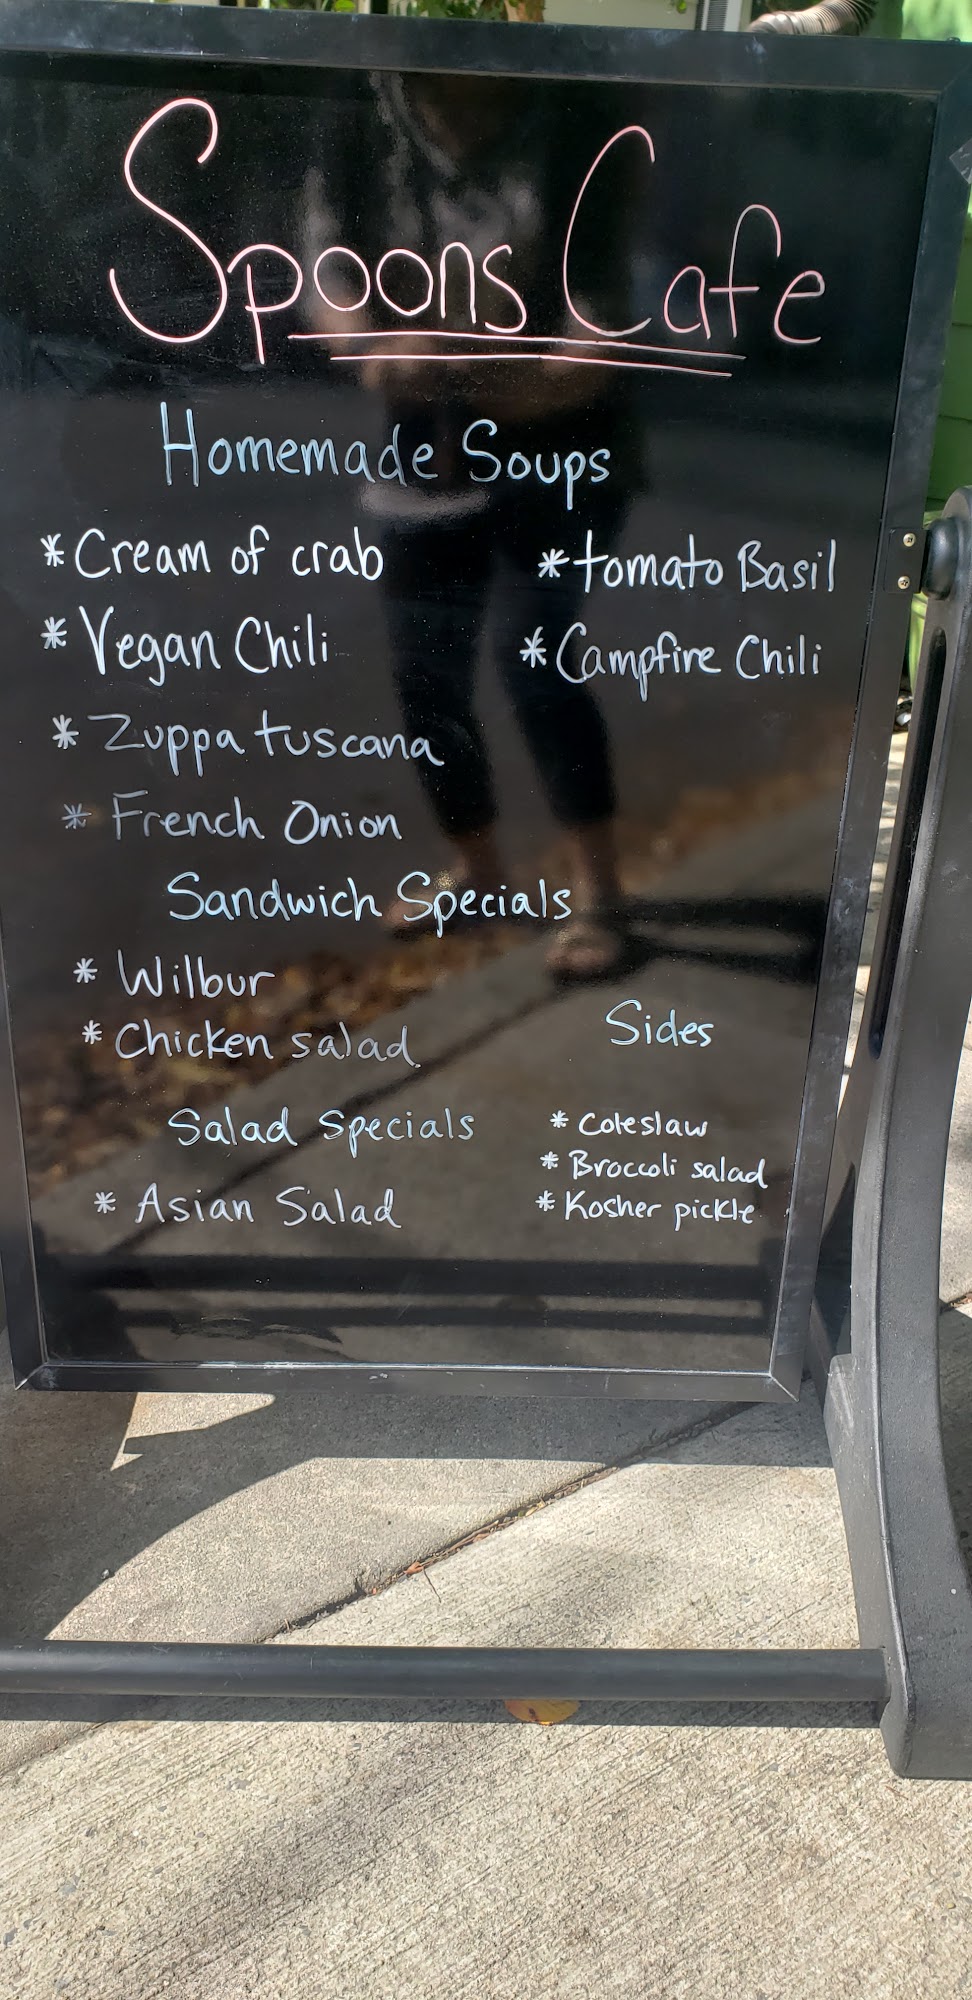 Spoons Cafe
Homemade Soups
* Cream of crab
* Vegan Chili
* Zuppa tuscana
* French Onion
* tomato Basil
* Campfire Chili
Sandwich Specials
* Wilbur
* Chicken salad
Salad Specials
* Asian Salad
Sides
* Coleslaw
* Broccoli salad
* Kosher pickle